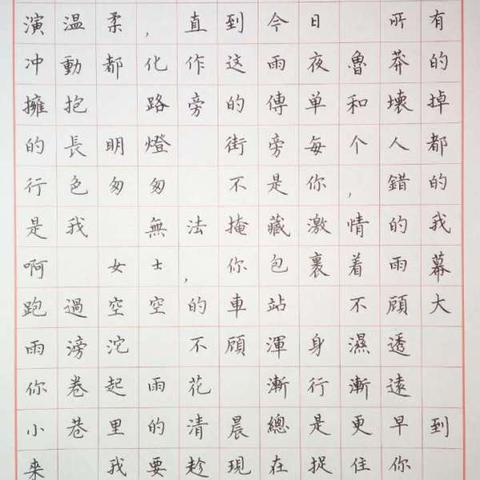 演温柔,直到今日 所有
冲動都 化作这雨夜魯莽的
擁抱 路旁的傳单和壞掉
的長明燈 街旁每个人都
行色匆匆 不是你,錯的
是我 無法掩藏激情的我
啊 女士,你包裹着雨幕
跑過空空的車站 不顧大
雨滂沱 不顧渾身濕透
你卷起雨花 漸行漸遠
小巷里的清晨總是更早到
来 我要趁現在捉住你